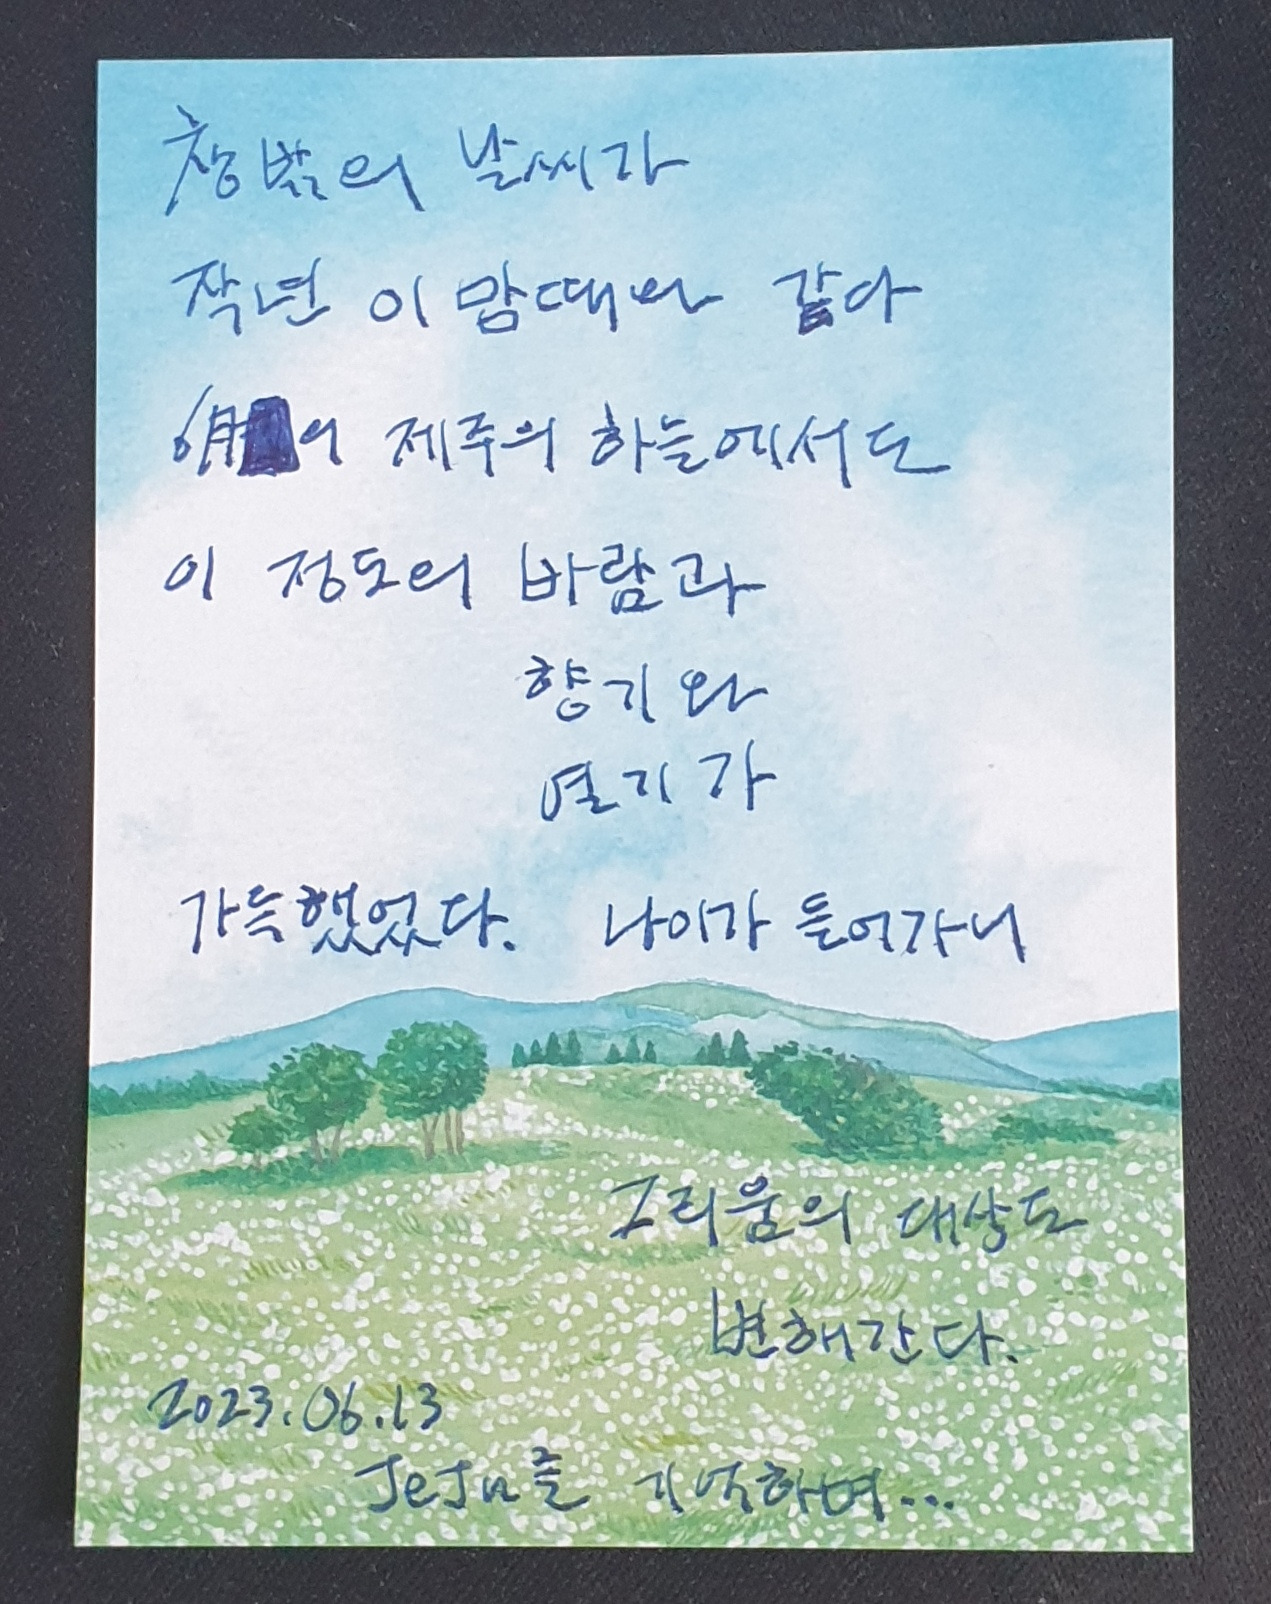 창밖의 날씨가
작년 이맘때와 같다
6月의 제주의 하늘에서도
이 정도의 바람과
향기와
열기가
가득했었다. 나이가 들어가니
그리움의 대상도
변해간다.
2023.06.13
JeJu를 기억하며...